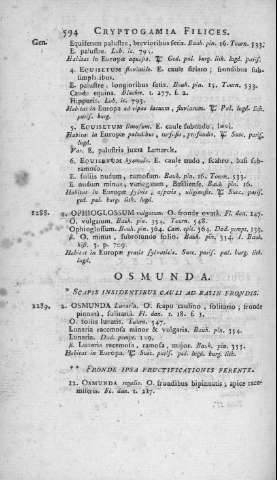 594 CRYPTOGAMIA FILICES.
Gen. Equisetum palustre, brevioribus setis. Bauh. pin. 16. Tourn. 533.
E. palustre. Lob. ic. 795.
Habitat in Europæ aquosis. ♃ Ged. pal. burg. lith. lugd. paris.
4. EQUISETUM fluviatile. E. caule striato; frondibus sub-
simplicibus.
E. palustre; longioribus setis. Bauh. pin. 15. Tourn. 533.
Cauda equina. Blackw. t. 217. f. 2.
Hipparis. Lob. ic. 793.
Habitat in Europa ad ripas lacuum, fluviorum. ♃ Pal. lugd. lith.
paris. burg.
5. EQUISETUM limosum. E. caule subnudo, lævi.
Habitat in Europæ paludibus, turfosis, profundis. ♃ Suec. paris.
lugd.
Var. 8. palustris juxta Lamarck.
6. EQUISETUM hyemale. E. caule nudo, scabro, basi sub-
ramoso.
E. foliis nudum, ramosum. Bauh. pin. 16. Tourn. 533.
E. nudum minus, variegatum, Basiliense. Bauh. pin. 16.
Habitat in Europæ sylvis, asperis, uliginosis. ♃ Suec. paris.
ged. pal. burg. lith. lugd.
2288. 2. OPHIOGLOSSUM vulgatum. O. fronde ovatâ. Fl. dan. 147.
O. vulgatum. Bauh. pin. 354. Tourn. 548.
Ophioglossum. Bauh. pin. 364. Cam. epit. 364. Dod. pempt. 139.
β. O. minus, subrotundo folio. Bauh. pin. 354. J. Bauh.
hist. 3. p. 709.
Habitat in Europæ pratis sylvaticis. Suec. paris. pal. burg. lith.
lugd.
OSMUNDA.
* SCAPIS INSIDENTIBUS CAULI AD BASIN FRONDIS.
2289. 2. OSMUNDA Lunaria. O. scapo caulino, solitario; fronde
pinnatâ, solitariâ. Fl. dan. t. 18. f. 3.
O. foliis lunatis. Tourn. 547.
Lunaria racemosa minor & vulgaris. Bauh. pin. 354.
Lunaria. Dod. pempt. 139.
β. Lunaria racemosa, ramosa, major. Bauh. pin. 355.
Habitat in Europa. ♃ Suec. paris. pal. lugd. burg. lith.
** FRONDE IPSA FRUCTIFICATIONES FERENTE.
12. OSMUNDA regalis. O. frondibus bipinnatis; apice race-
miferis. Fl. dan. t. 217.